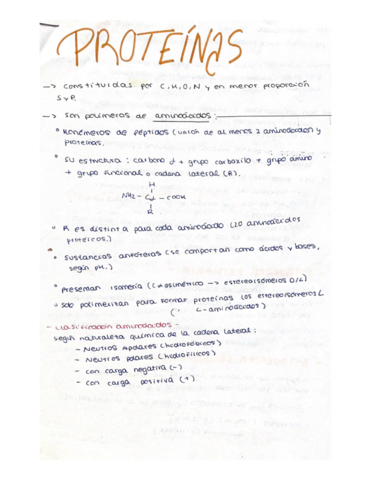 PROTEÍNAS
-> Constituidas por C, H, O, N y en menor proporción
S y P.
-> Son polímeros de aminoácidos:
* Monómeros de péptidos (unión de al menos 2 aminoácidos) y
proteínas.
* SU estructura: carbono α + grupo carboxilo + grupo amino
+ grupo funcional o cadena lateral (R).
H
NH2 - Cα - COOH
R
* R es distinta para cada aminoácido (20 aminoácidos
proteicos.)
* Sustancias anfóteras (se comportan como ácidos y bases,
según pH.)
* Presentan isomería (C asimétrico -> estereoisómeros D/L)
* Solo polimerizan para formar proteínas los estereoisómeros L
(L-aminoácidos)
- Clasificación aminoácidos -
según naturaleza química de la cadena lateral:
- Neutros Apolares (hidrofóbicos)
- Neutros polares (hidrofílicos)
- con carga negativa (-)
- con carga positiva (+)